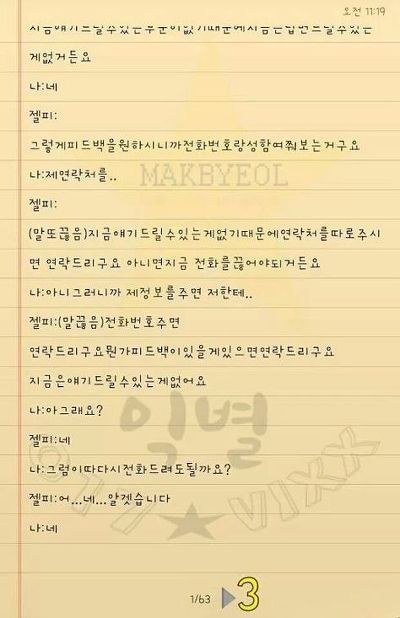 오전 11:19
지금얘기드릴수있는부분이없기때문에지금은답변드릴수있는
게없거든요
나:네
젤피:
그렇게피드백을원하시니까전화번호랑성함여쭤보는거구요
나:제연락처를..
MAKBYEOL
젤피:
(말또끊음)지금얘기드릴수있는게없기때문에연락처를따로주시
면 연락드리구요 아니면지금 전화를끊어야되거든요
나:아니그러니까 제정보를주면 저한테..
젤피:(말끊음)전화번호주면
연락드리구요뭔가피드백이있을게있으면연락드리구요
지금은얘기드릴수있는게없어요
나:아그래요?
젤피:네
나:그럼이따다시전화드려도될까요?
젤피:어...네...알겟습니다
나:네
★VIXX
1/63
3